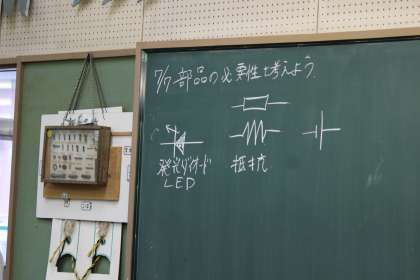 7/7 部品の必要性を考えよう
発光ダイオード 抵抗
LED